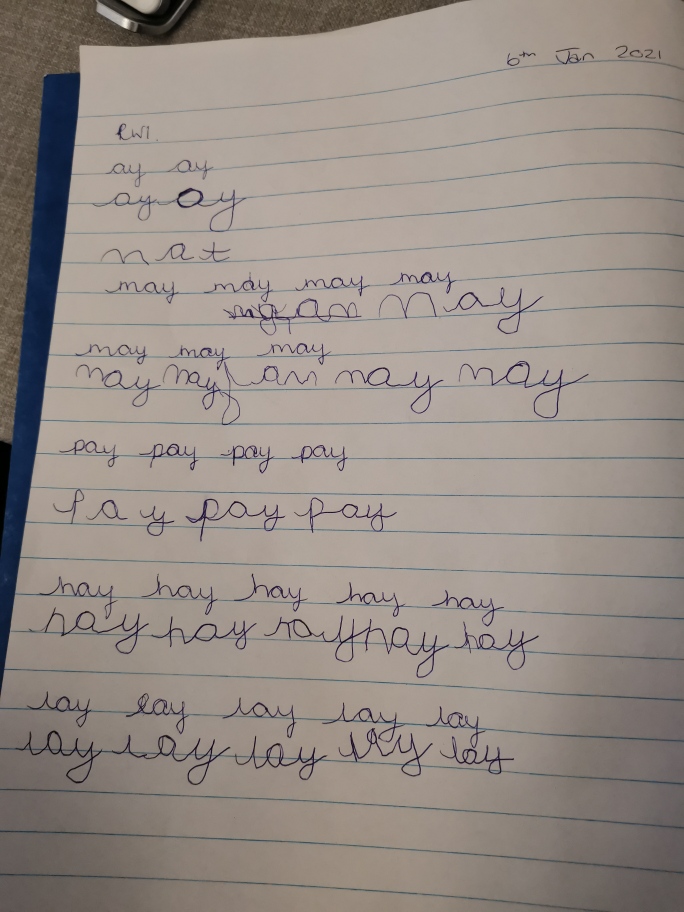 6th Jan 2021
RWI.
ay ay
ay ay
n a t
may may may may
an may
may may may
may may an may may
pay pay pay pay
p a y pay pay
hay hay hay hay hay
hay hay hay hay hay
lay lay lay lay lay
lay lay lay lay lay